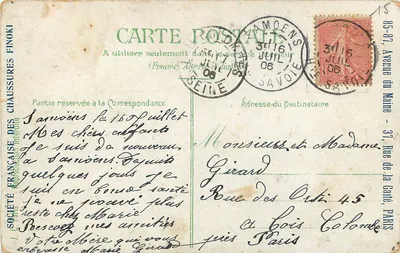 15
CARTE POSTALE
A utiliser seulement
Partie réservée à la Correspondance
Adresse du Destinataire
SAMOENS
3E 16
JUIL
06
HTE SAVOIE
SAMOENS
3E 16
JUIL
06
HTE SAVOIE
06
SEINE
SOCIÉTÉ FRANÇAISE DES CHAUSSURES FINOKI
85-87, Avenue du Maine - 37, Rue de la Gaîté, PARIS
Samoëns le 16 Juillet
Mes chers enfants
Je suis de nouveau
a Samoëns depuis
quelques jours Je
suis en bonne santé
je ne
plus
reste chez Marie
Recevez mes amitiés
Votre Mère qui vous
embrasse Marie Girard
Monsieur et Madame
Girard
Rue des 45
a Bois Colombe
près Paris